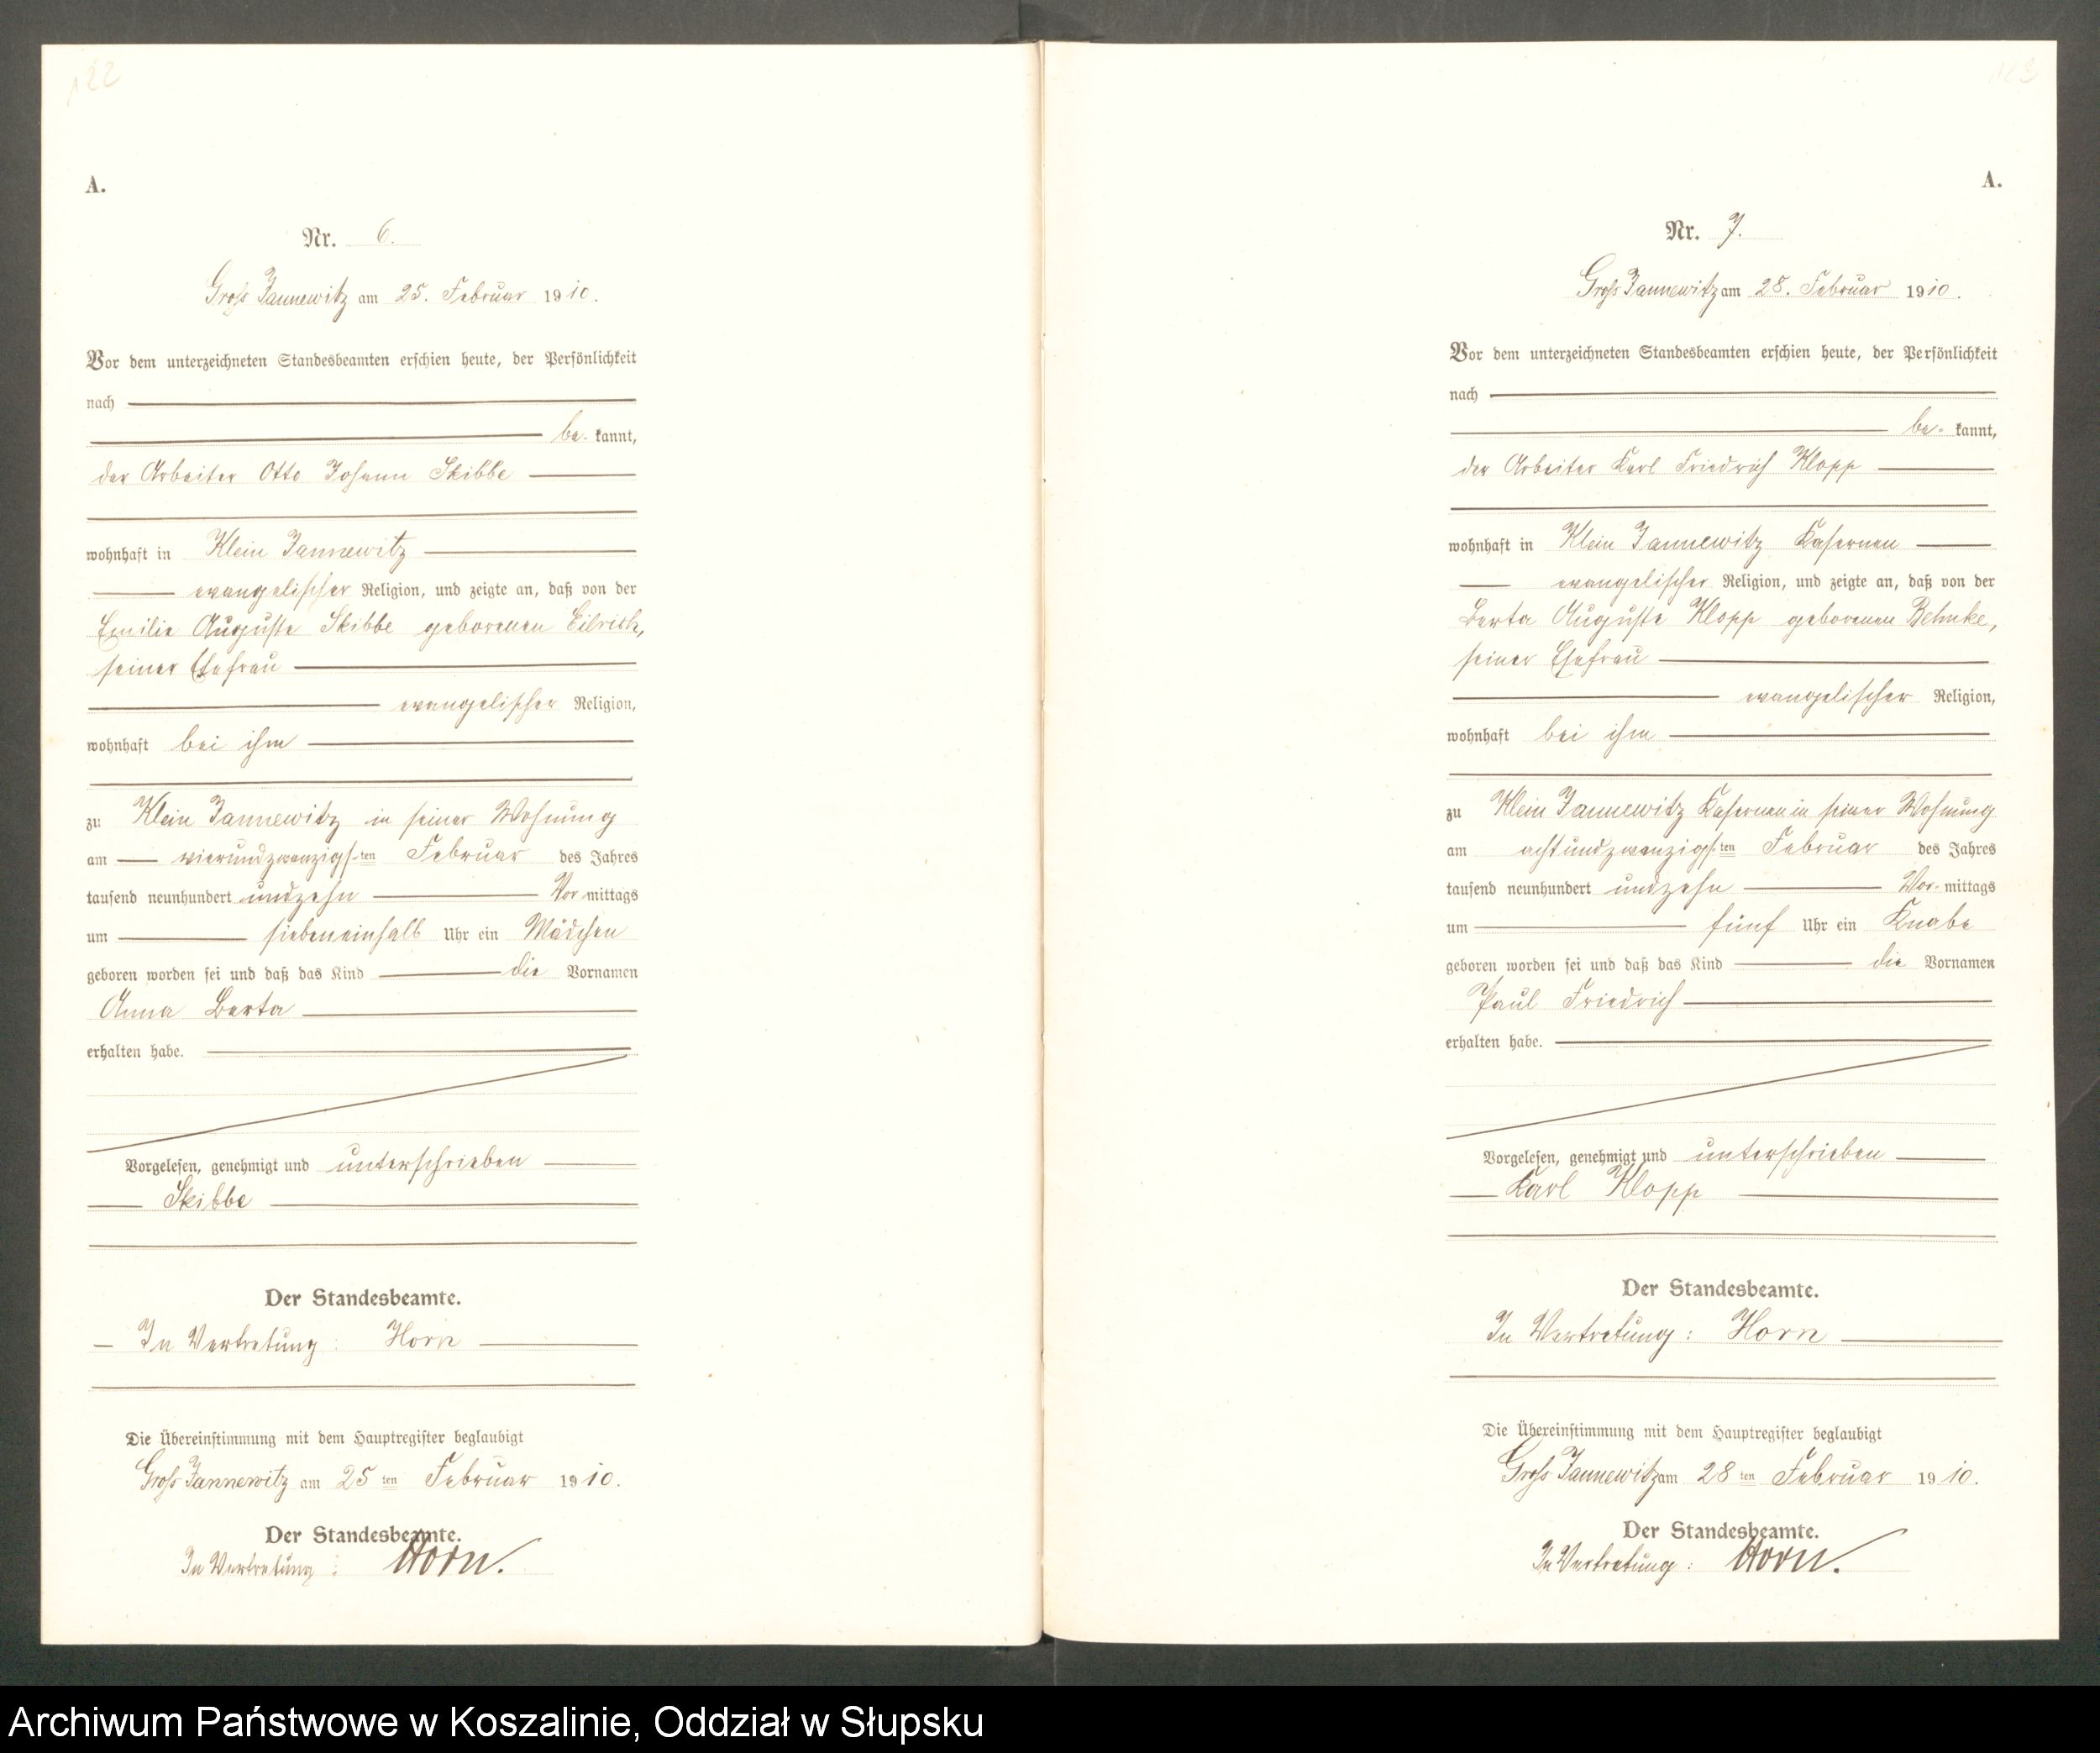 122
A.
Nr. 6.
Groß Jannewitz am 25. Februar 1910.
Vor dem unterzeichneten Standesbeamten erschien heute, der Persönlichkeit
nach
be- kannt,
der Arbeiter Otto Johann Skibbe
wohnhaft in Klein Jannewitz
evangelischer Religion, und zeigte an, daß von der
Emilie Auguste Skibbe geborenen Eilrich,
seiner Ehefrau
evangelischer Religion,
wohnhaft bei ihm
zu Klein Jannewitz in seiner Wohnung
am vierundzwanzigsten Februar des Jahres
tausend neunhundert undzehn Vor mittags
um siebeneinhalb Uhr ein Mädchen
geboren worden sei und daß das Kind die Vornamen
Anna Berta
erhalten habe.
Vorgelesen, genehmigt und unterschrieben
Skibbe
Der Standesbeamte.
In Vertretung: Horn
Die Übereinstimmung mit dem Hauptregister beglaubigt
Groß Jannewitz am 25 ten Februar 1910.
Der Standesbeamte.
In Vertretung: Horn.
123
A.
Nr. 7.
Groß Jannewitz am 28. Februar 1910.
Vor dem unterzeichneten Standesbeamten erschien heute, der Persönlichkeit
nach
be- kannt,
der Arbeiter Karl Friedrich Klopp
wohnhaft in Klein Jannewitz Kasernen
evangelischer Religion, und zeigte an, daß von der
Berta Auguste Klopp geborenen Behnke,
seiner Ehefrau
evangelischer Religion,
wohnhaft bei ihm
zu Klein Jannewitz Kasernen in seiner Wohnung
am achtundzwanzigsten Februar des Jahres
tausend neunhundert undzehn Vor- mittags
um fünf Uhr ein Knabe
geboren worden sei und daß das Kind die Vornamen
Paul Friedrich
erhalten habe.
Vorgelesen, genehmigt und unterschrieben
Karl Klopp
Der Standesbeamte.
In Vertretung: Horn
Die Übereinstimmung mit dem Hauptregister beglaubigt
Groß Jannewitz am 28 ten Februar 1910.
Der Standesbeamte.
In Vertretung: Horn.
Archiwum Państwowe w Koszalinie, Oddział w Słupsku